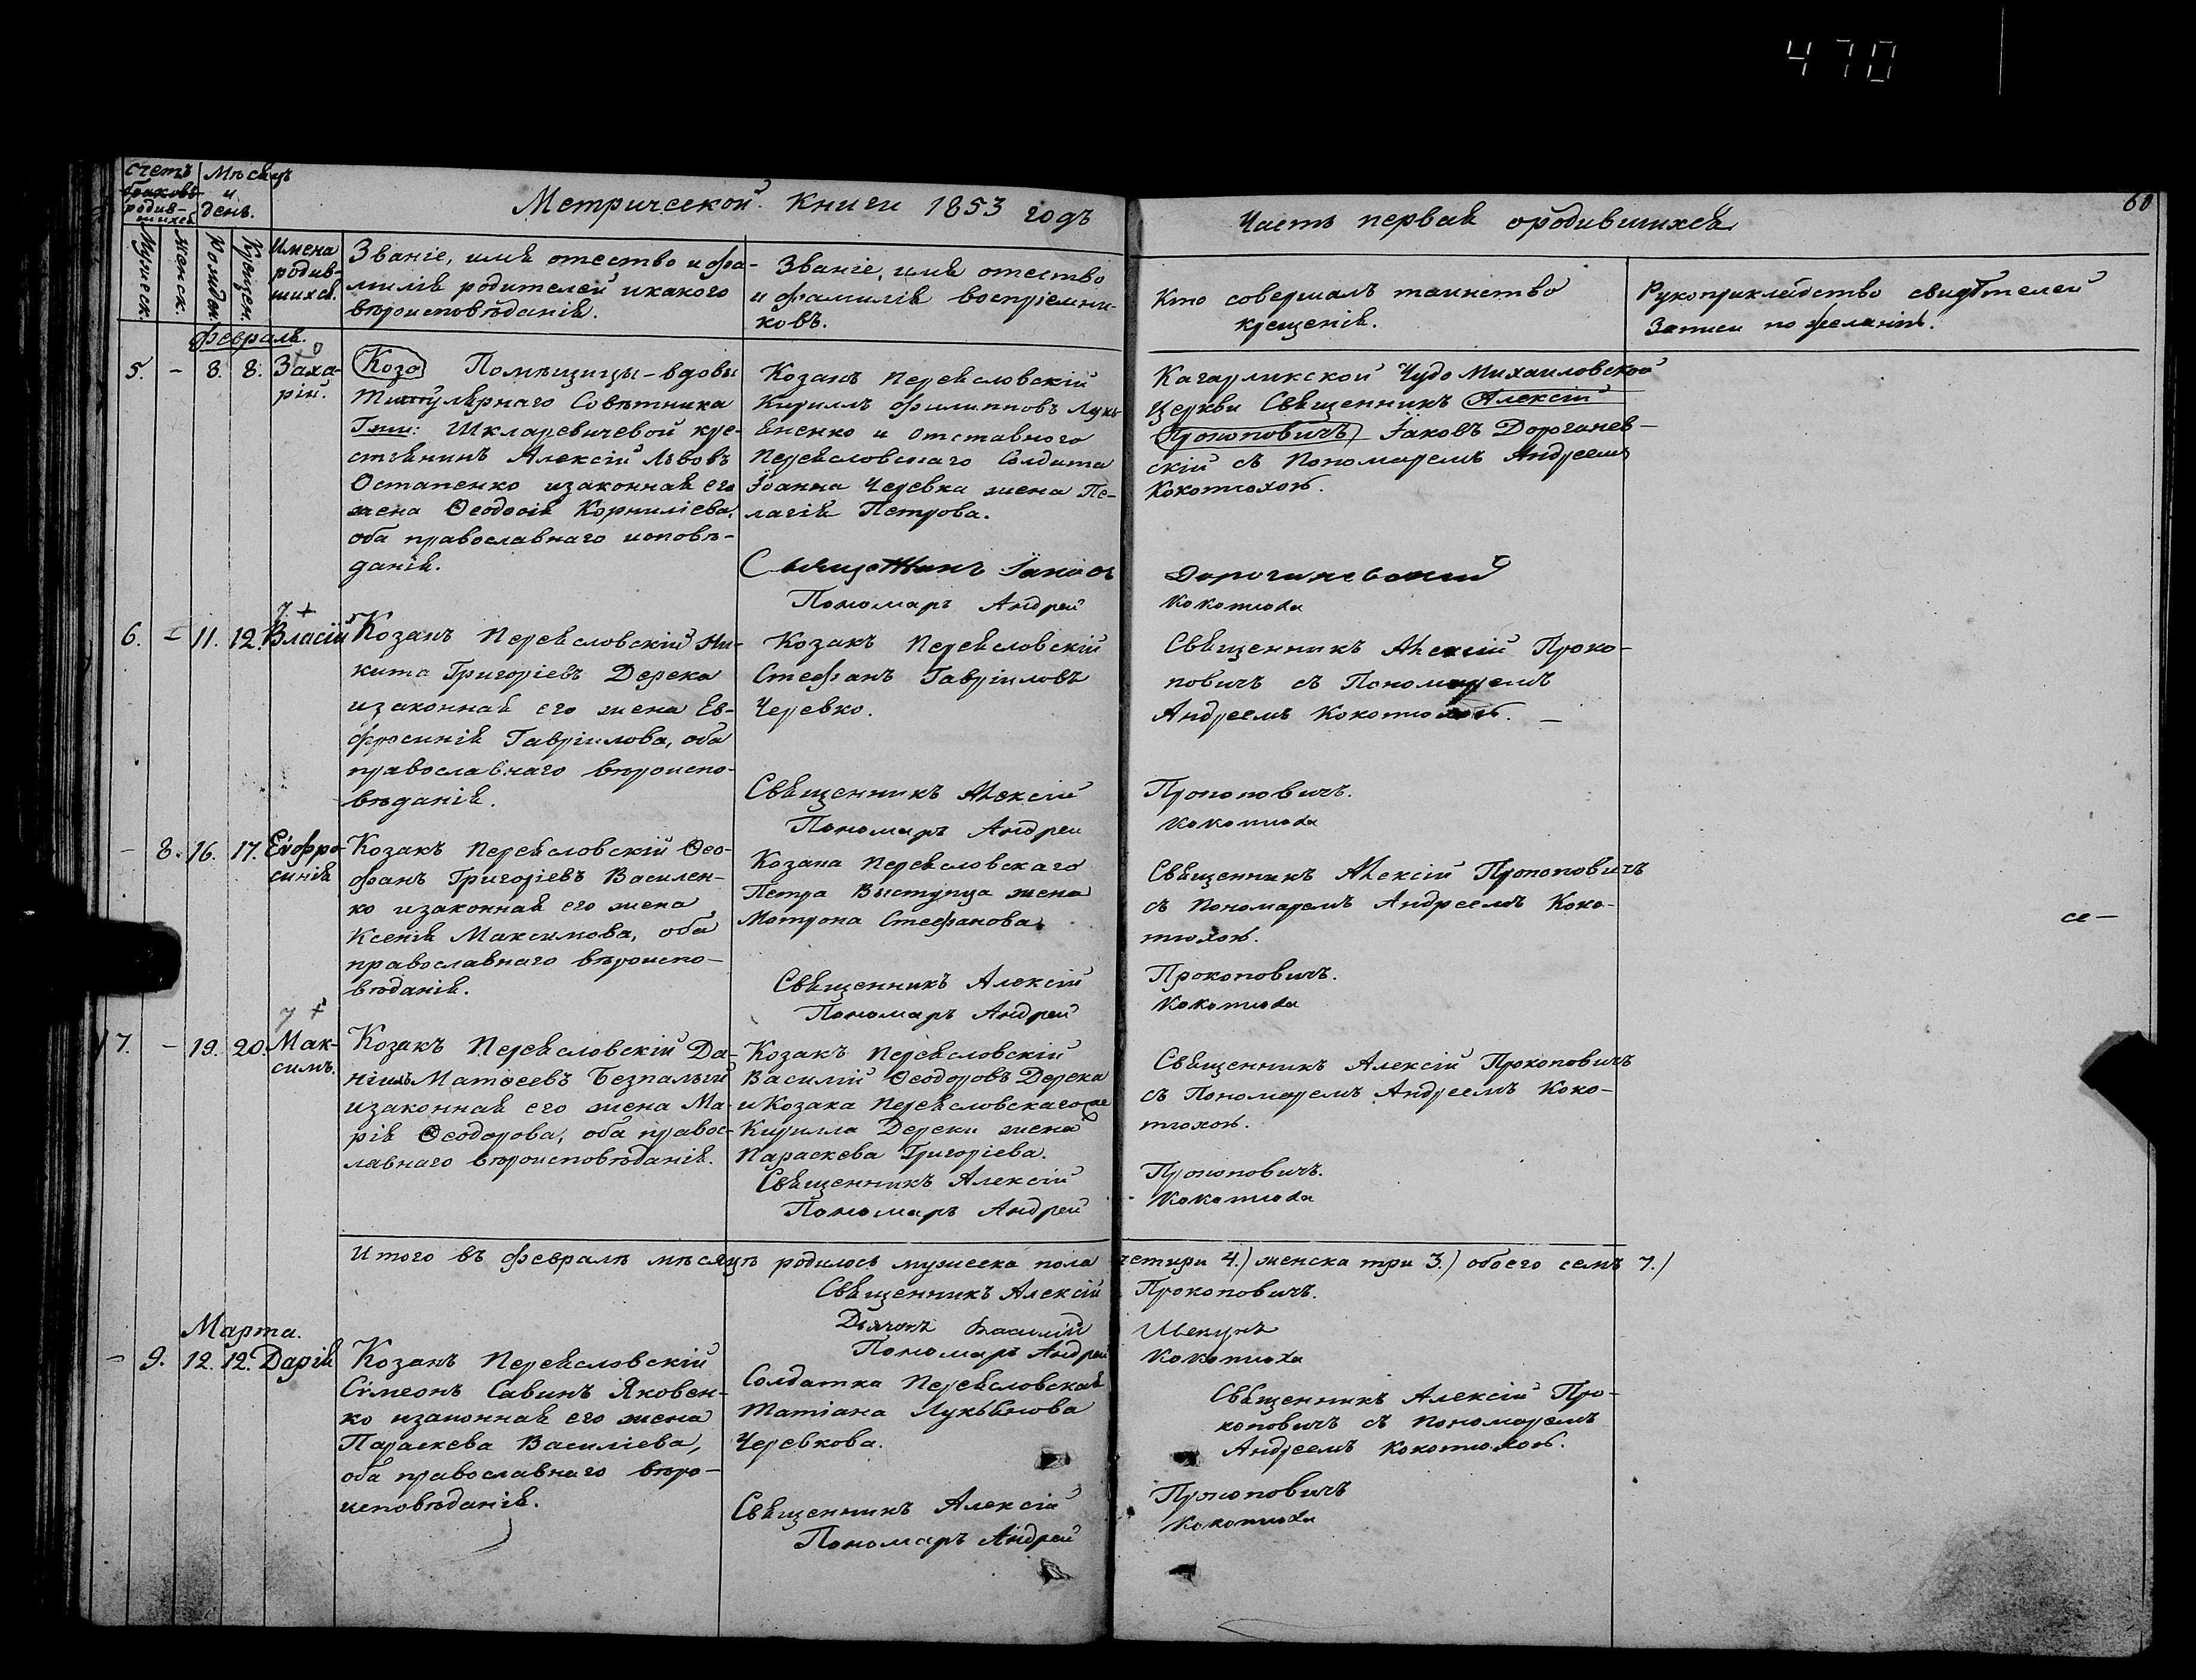 470
60
Счетъ
браковъ
родив-
шихся
Мѣсяцъ
и
день.
Метрической Книги 1853 годъ
Часть первая ородившихся
Мужеск.
Женск.
Рожден.
Крещен.
Имена
родив-
шихся.
Званіе, имя отество и фа-
милія родителей икакого
вѣроисповѣданія.
Званіе, имя отество
и фамилія воспріемни-
ковъ.
Кто совершалъ таинство
крещенія.
Рукоприклейство свидѣтелей
Записи по желанію.
Февраля.
5. - 8. 8. Заха-
рій.
Коза Помѣщицы-вдовы
Титулярнаго Совѣтника
Шкларевичевой кре-
стянинъ Алексій Львовъ
Остапенко изаконная его
жена Ѳеодосія Корниліева,
оба православнаго исповѣ-
данія.
Козакъ Переясловскій
Кириллъ Филипповъ Лукь
яненко и Отставного
Переясловскаго Солдата
Іоанна Черевка жена Пе-
лагія Петрова.
Кагарликской Чудо Михаиловской
Церкви Священникъ Алексій
Прокоповичъ Іаковъ Дороганев-
скій съ Пономаремъ Андреемъ
Кокотюхою.
Священникъ Іаковъ Дорогиневскій
Пономаръ Андрей Кокотюха
6. - 11. 12. Власій
Козакъ Переясловскій Ни-
кита Григоріевъ Дерека
изаконная его жена Ев-
фросинія Гавріилова, оба
православнаго вѣроиспо-
вѣданія.
Козакъ Переясловскій
Стефанъ Гавріиловъ
Черевко.
Священникъ Алексій Проко-
повичъ съ Пономаремъ
Андреемъ Кокотюхою. -
Священникъ Алексій Прокоповичъ.
Пономаръ Андрей Кокотюха
- 8. 16. 17. Еѵфро-
синія
Козакъ Переясловскій Ѳео-
фанъ Григоріевъ Василен-
ко изаконная его жена
Ксенія Максимова, оба
православнаго вѣроиспо-
вѣданія.
Козака Переясловскаго
Петра Выступца жена
Мотрона Стефанова.
Священникъ Алексій Прокоповичъ
съ Пономаремъ Андреемъ Коко-
тюхою.
се-
Священникъ Алексій Прокоповичъ.
Пономаръ Андрей Кокотюха
7. - 19. 20. Мак-
симъ.
Козакъ Переясловскій Да-
ніилъ Матѳеевъ Безпалый
изаконная его жена Ма-
рія Ѳеодорова, оба правос-
лавнаго вѣроисповѣданія.
Козакъ Переясловскій
Василій Ѳеодоровъ Дерека
и Козака Переясловскаго
Кирилла Дереки жена
Параскева Григоріева.
Священникъ Алексій Прокоповичъ
съ Пономаремъ Андреемъ Коко-
тюхою.
Священникъ Алексій Прокоповичъ.
Пономаръ Андрей Кокотюха
Итого въ Февралѣ мѣсяцѣ родилось мужеска пола четири 4.) женска три 3.) обоего семъ 7.)
Священникъ Алексій Прокоповичъ.
Дьячокъ Василій Шекунъ
Пономаръ Андрей Кокотюха
Марта.
- 9. 12. 12. Дарія
Козакъ Переясловскій
Сѵмеонъ Савинъ Яковен-
ко изаконная его жена
Параскева Василіева,
оба православнаго вѣро-
исповѣданія.
Солдатка Переясловская
Татіана Лукьянова
Черевкова.
Священникъ Алексій Про-
коповичъ съ Пономаремъ
Андреемъ Кокотюхою.
Священникъ Алексій Прокоповичъ
Пономаръ Андрей Кокотюха